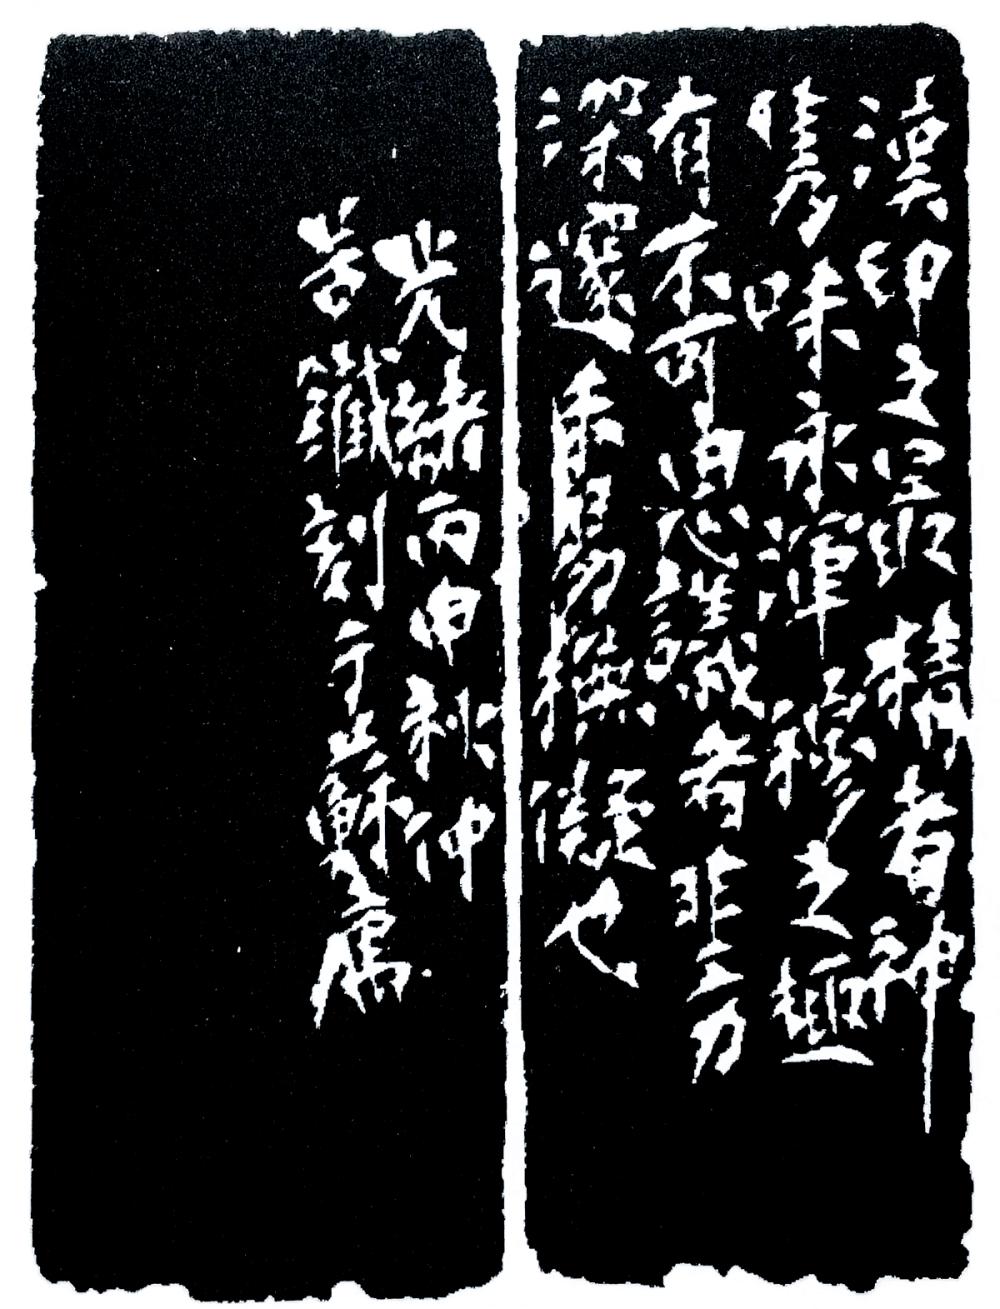 漢印之最精者神
雋味永渾穆之趣
有不可思議者非工力
深邃易橅儗也
光緒丙申秋仲
苦鐵刻于蘇寓